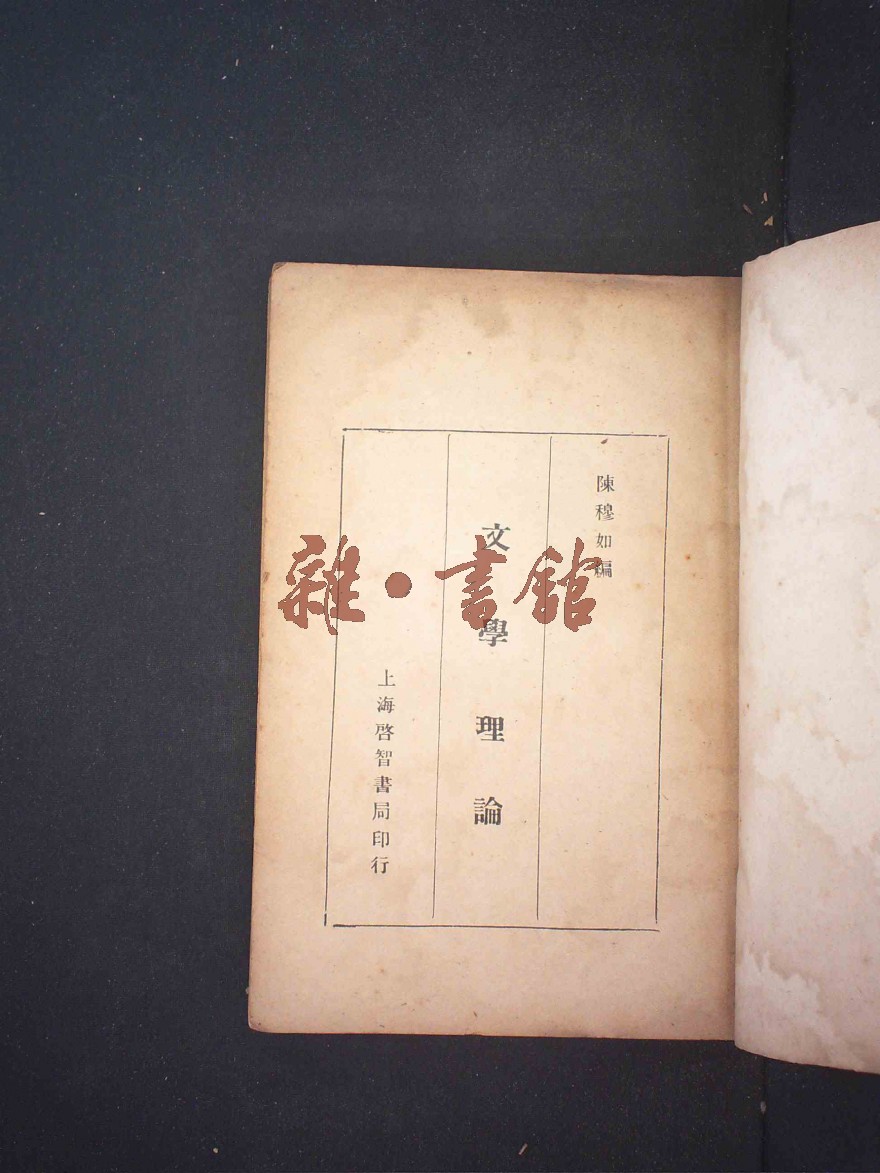 陳穆如編
文學理論
上海啓智書局印行
雜·書館